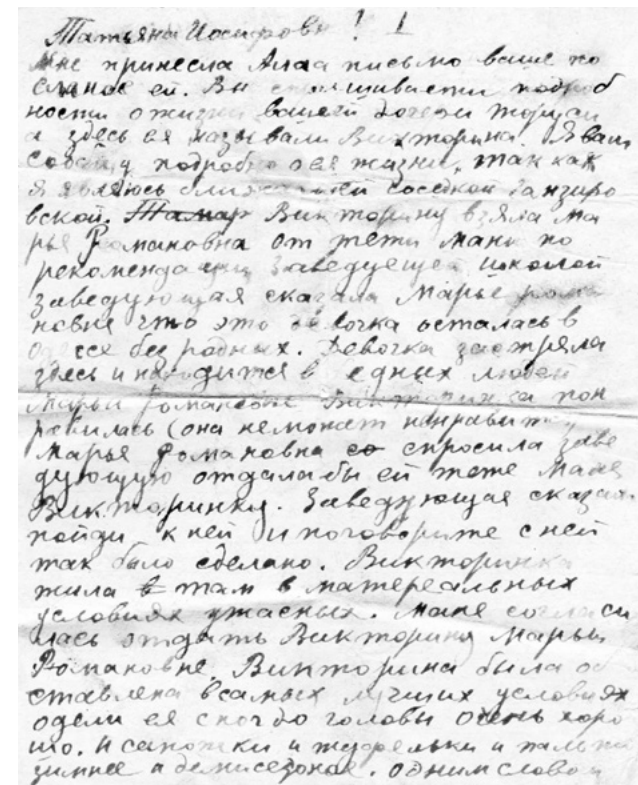 Татьяна Иосифовн ! 1
Мне принесла Алла письмо ваше по
сланое ей. Вы спрашиваети подроб
ности о жизни вашей дочери
а здесь ея называли Викторина. Я вам
сообщу подробно о ея жизни, так как
я являюсь ближайшей соседкой Ганзиро
вской. Викторину взяла Ма
рья Романовна от тети Мани по
рекомендации заведующей школой
заведующая сказала Марье Рома
новне что это девочка осталась в
Одессе без родных. Девочка застряла
здесь и находится в едных людей
Марьи Романовне Викторинка пон
равилась (она неможет ненравит
Марье Романовна спросила заве
дующую отдала бы ей тете Маня
Викторинку. Заведующая сказала
пойди к ней и поговорите с ней
так было сделано. Викторинка
жила в там в матереальных
условиях ужасных. Маня согласи
лась отдать Викторину Марьи
Романовне. Викторина была об
ставлена всамых лучших условиях
одели ея с ног до головы очень хоро
шо. и сапожки и туфельки и пальто
зимнее и демисезоное. одним словом